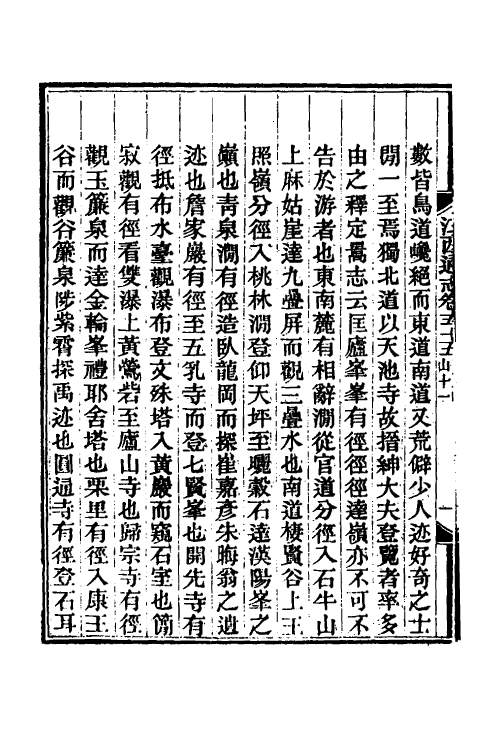 數皆鳥道巉絕而東道南道又荒僻少人迹好奇之士
閒一至焉獨北道以天池寺故搢紳大夫登覽者率多
由之釋定暠志云匡廬峯峯有徑徑徑達嶺亦不可不
告於游者也東南麓有相辭澗從官道分徑入石牛山
上麻姑崖達九疊屏而觀三疊水也南道棲賢谷上王
照嶺分徑入桃林澗登仰天坪至曬穀石達漢陽峯之
巔也靑泉澗有徑造臥龍岡而探崔嘉彥朱晦翁之遺
迹也詹家巖有徑至五乳寺而登七賢峯也開先寺有
徑抵布水臺觀瀑布登文殊塔入黃巖而窺石室也簡
寂觀有徑看雙瀑上黃鶯砦至廬山寺也歸宗寺有徑
觀玉簾泉而達金輪峯禮耶舍塔也栗里有徑入康王
谷而觀谷簾泉陟紫霄探禹迹也圓通寺有徑登石耳
江西通志卷 山十一
一